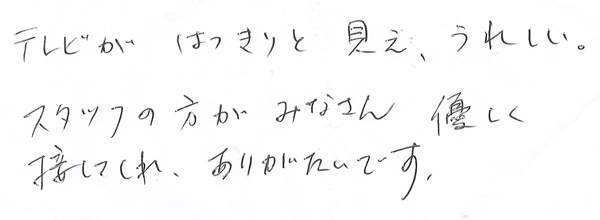 テレビが はっきりと 見え、うれしい。
スタッフの方が みなさん 優しく
接してくれ、ありがたいです。